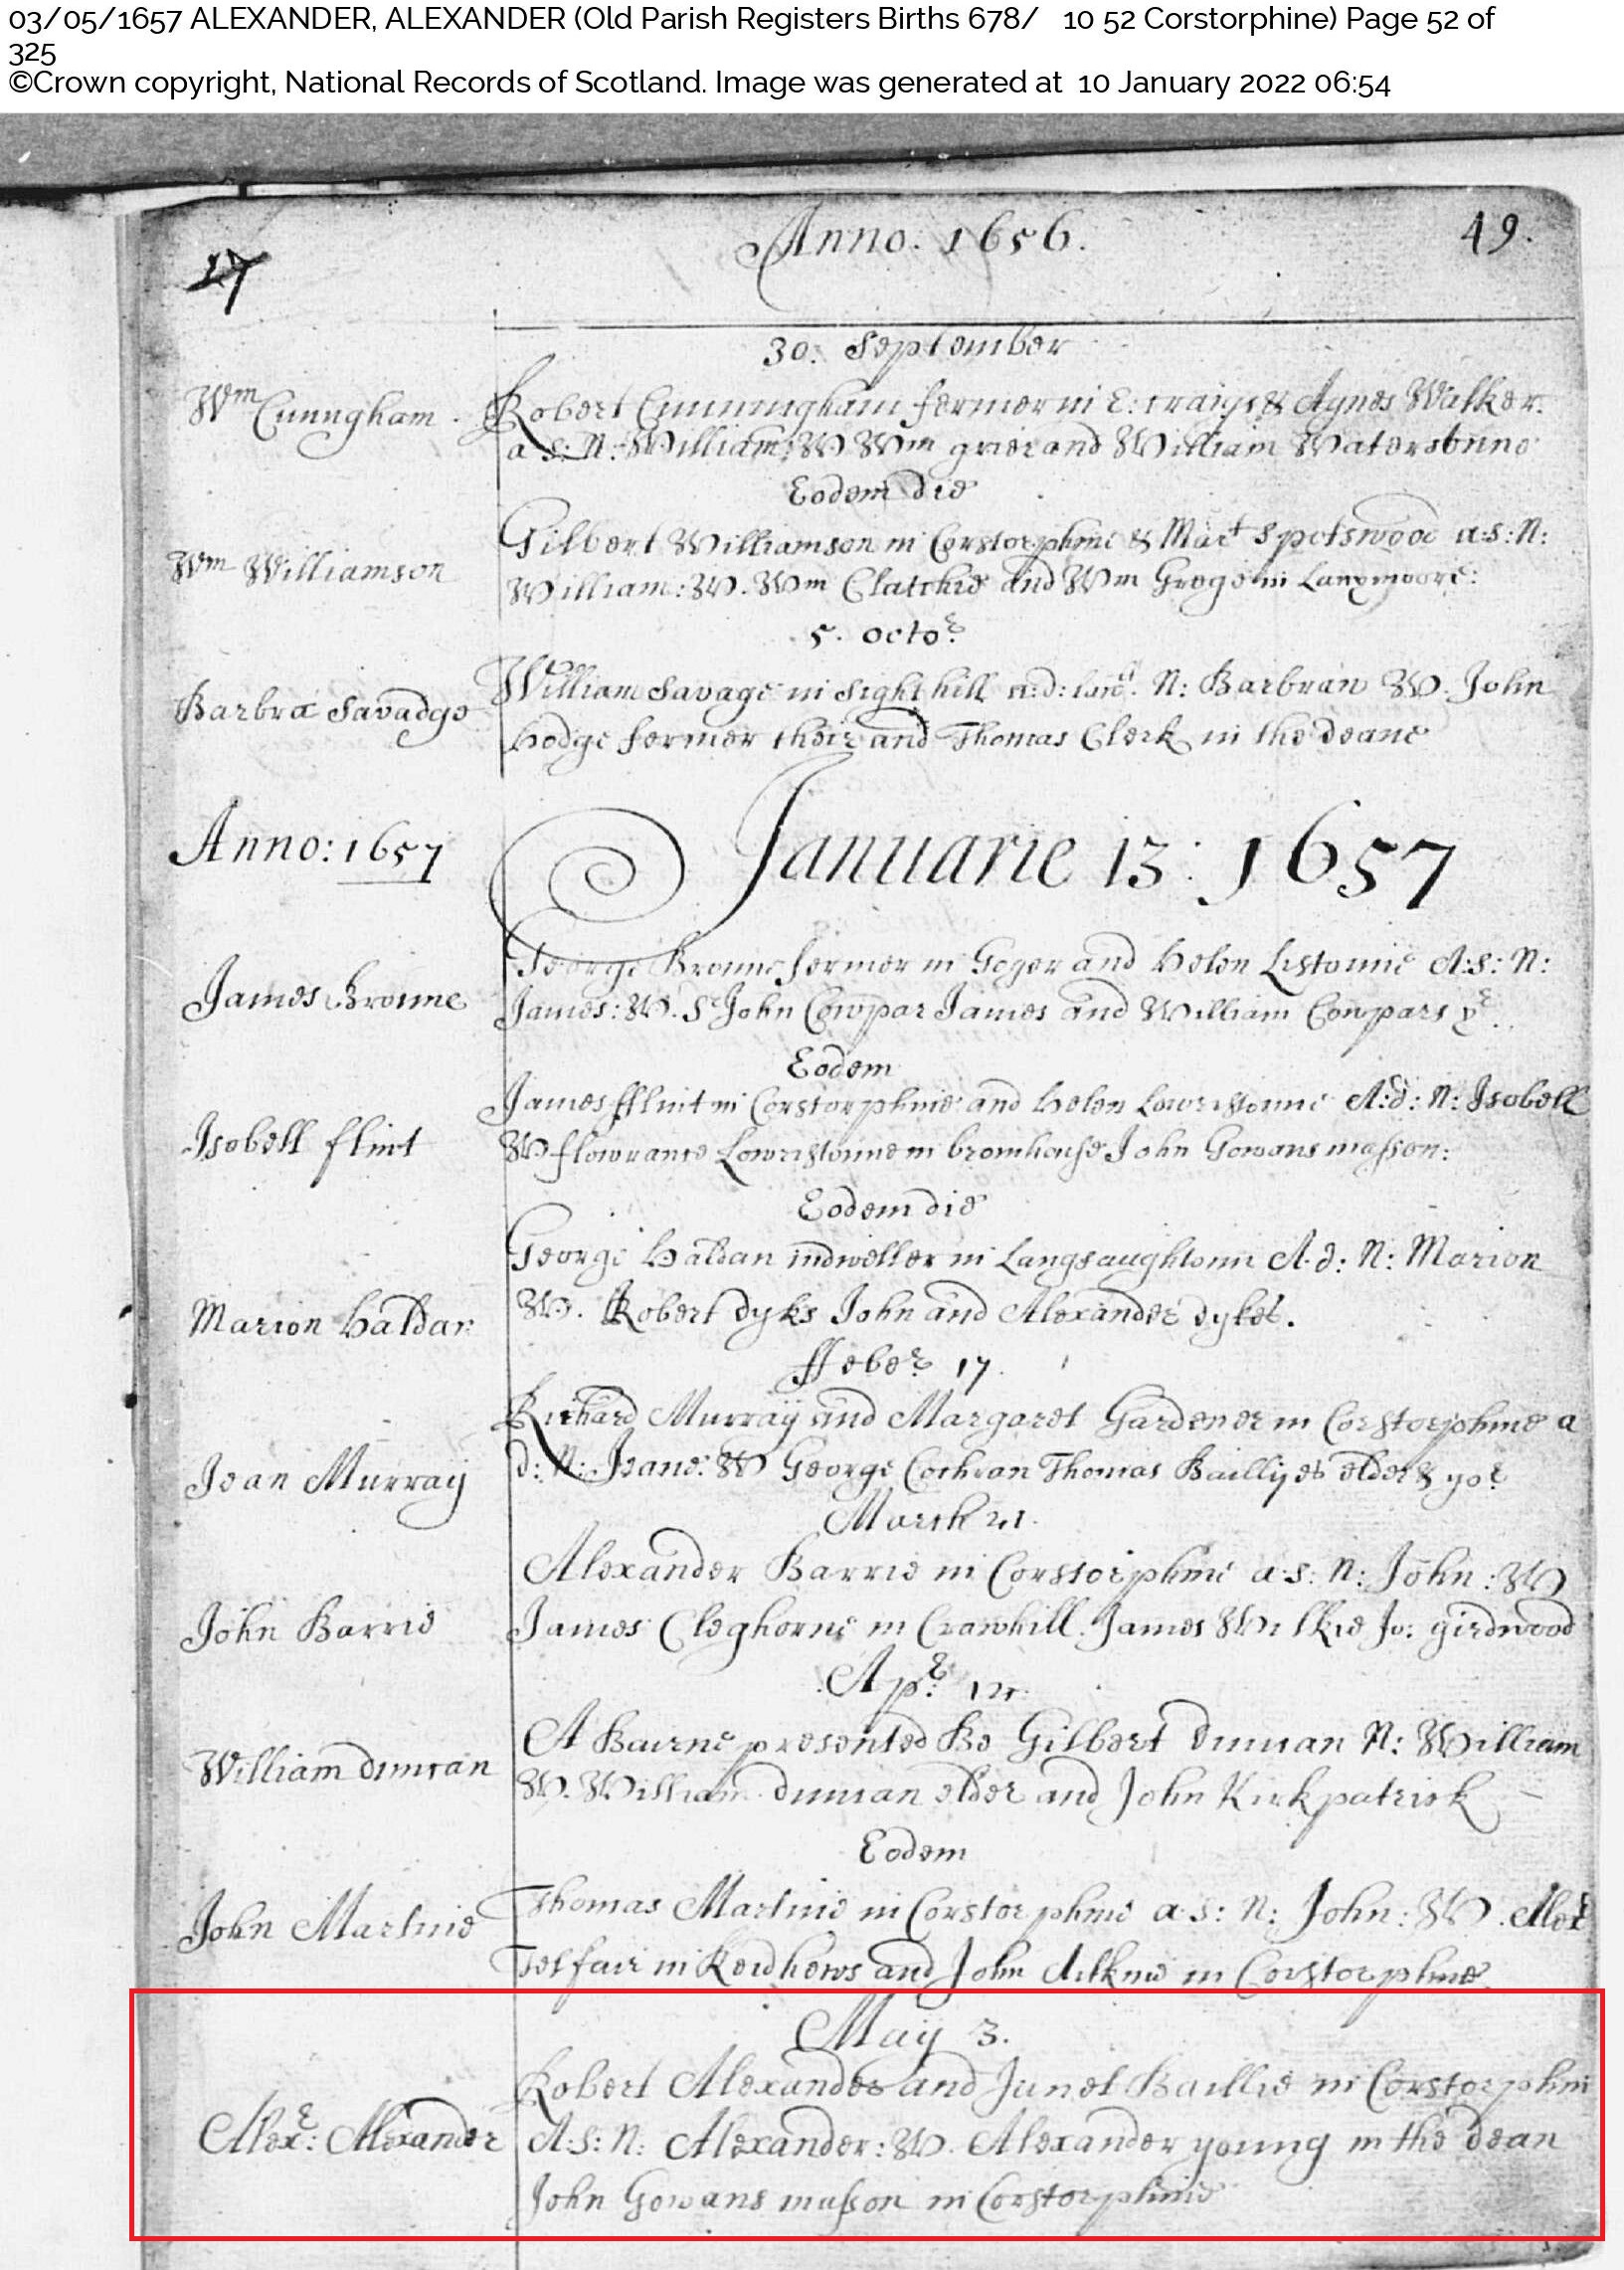 03/05/1657 ALEXANDER, ALEXANDER (Old Parish Registers Births 678/   10 52 Corstorphine) Page 52 of
325
©Crown copyright, National Records of Scotland. Image was generated at  10 January 2022 06:54
Anno. 1656.
49.
27
30: September
Wm Cunngham.
Robert Cunningham fermer in E: craigs & Agnes Walker.
a s: N: William: W Wm grier and William Waterstonne
Eodem die
Wm Williamson
Gilbert Williamson in Corstorphine & Mart Spotswood a:s: N:
William: W. Wm Clatchie and Wm Grege in
5. octor
Barbra Savadge
William Savage in Sighthill a:d: N: Barbran W. John
Hodge fermer their and Thomas Clerk in the deane
Anno: 1657
Januarie 13: 1657
James Broune
George Broune fermer in Goger and Helen Listonne A:s: N:
James: W. Sr John Cowpar James and William Cowpars yr.
Eodem
Isobell flint
James fflint in Corstorphine and Helen Lowristonne A:d: N: Isobell
W flowrance Lowristonne in bromhouse John Gowans masson:
Eodem die
Marion Haldan
George Haldan indweller in Langsaughtonn A. d: N: Marion
W. Robert dyks John and Alexander dykes.
ffeber 17.
Jean Murray
Richard Murray and Margaret Gardener in Corstorphine a
d: N: Jeane: W George Cochran Thomas Baillyes elder & yor
March 21.
John Barrie
Alexander Barrie in Corstorphine a:s: N: John: W
James Cleghorne in Crawhill. James Wilkie Jo: girdwood
Apr: 12
William duncan
A Bairne presented Be Gilbert duncan N: William
W. William duncan elder and John Kirkpatrick
Eodem
John Martine
Thomas Martine in Corstorphine a:s: N: John: W. Alexr
Telfair in Reidhews and John Aitkine in Corstorphine
May 3.
Alexr: Alexander
Robert Alexander and Junet Baillie in Corstorphin
A:s: N: Alexander: W. Alexander young in the dean
John Gowans masson in Corstorphine